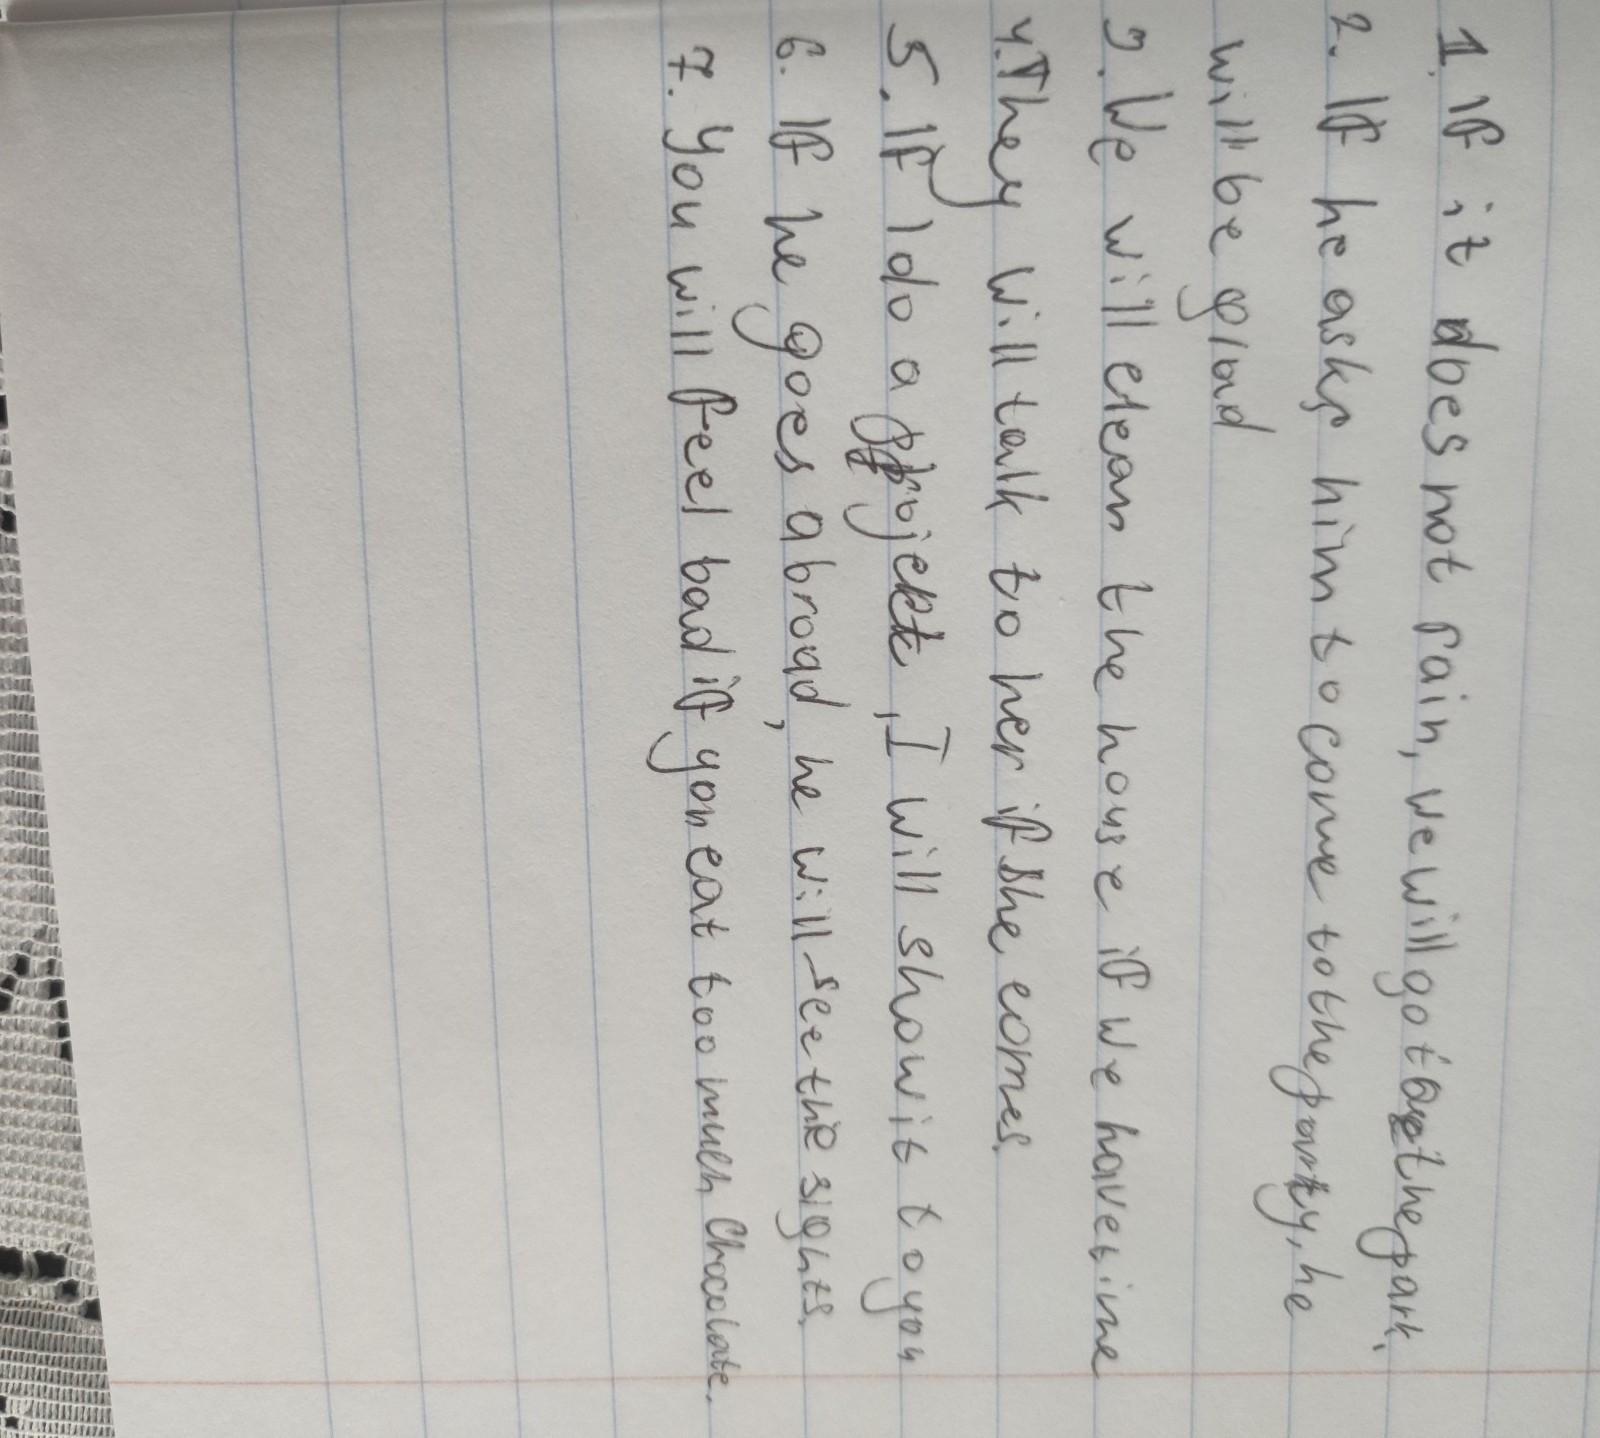 1. If it does not rain, we will go to the park.
2. If he asks him to come to the party, he
will be glad
3. We will clean the house if we have time
4. They will talk to her if she comes.
5. If I do a project, I will show it to you
6. If he goes abroad, he will see the sights.
7. You will feel bad if you eat too much Chocolate.